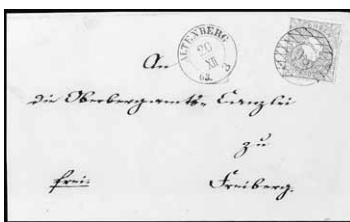 ALTENBERG
20
XII
63.
An
die Oberbergamts-Canzlei
zu
frei.
Freiberg.